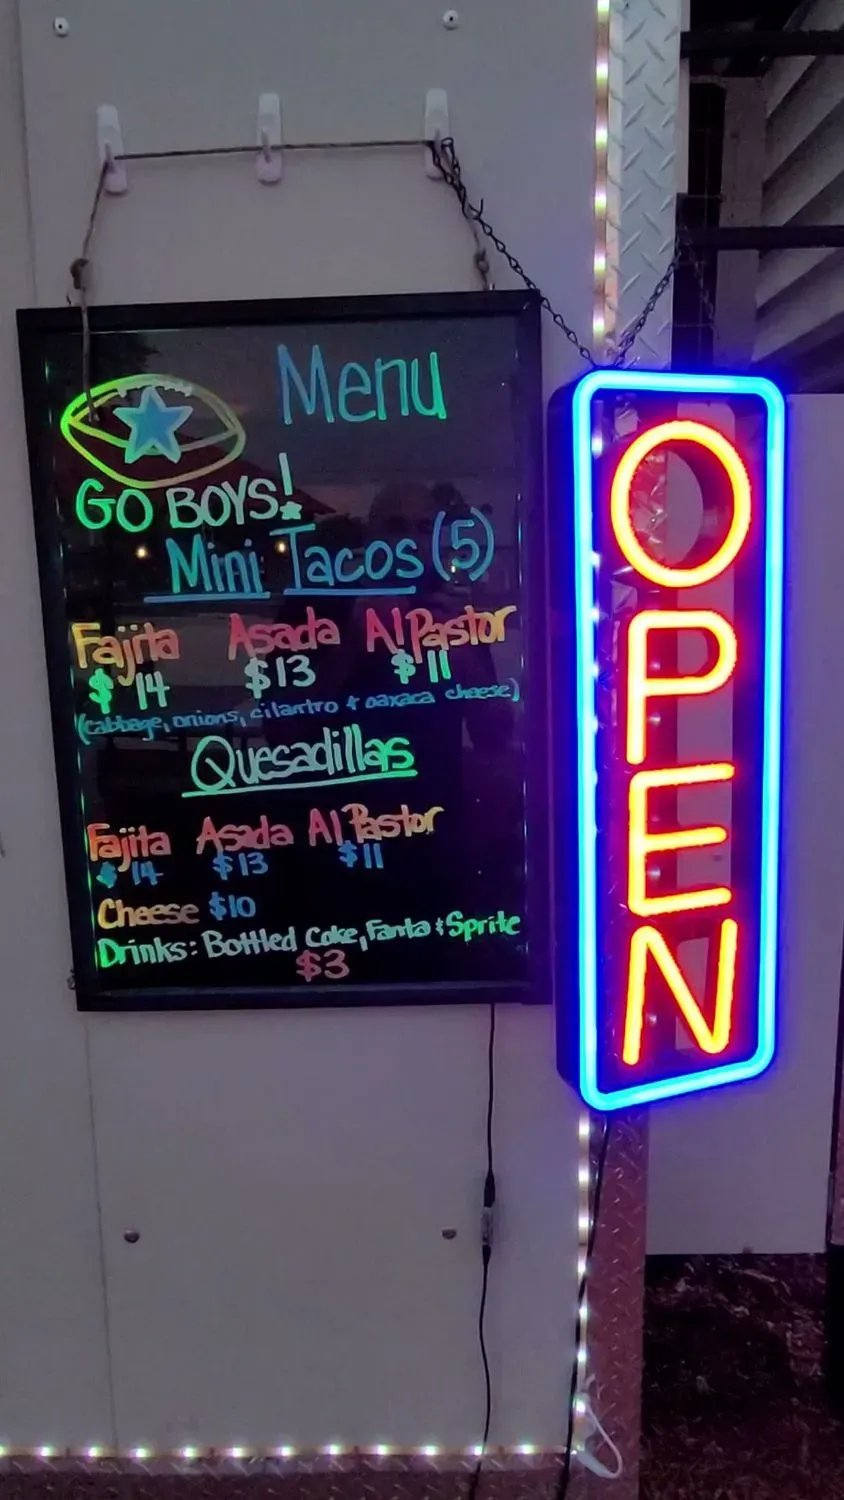 Menu
GO BOYS!
Mini Tacos (5)
Fajita Asada Al Pastor
$14 $13 $11
(cabbage, onions, cilantro + oaxaca cheese)
Quesadillas
Fajita Asada Al Pastor
$14 $13 $11
Cheese $10
Drinks: Bottled Coke, Fanta & Sprite
$3
OPEN